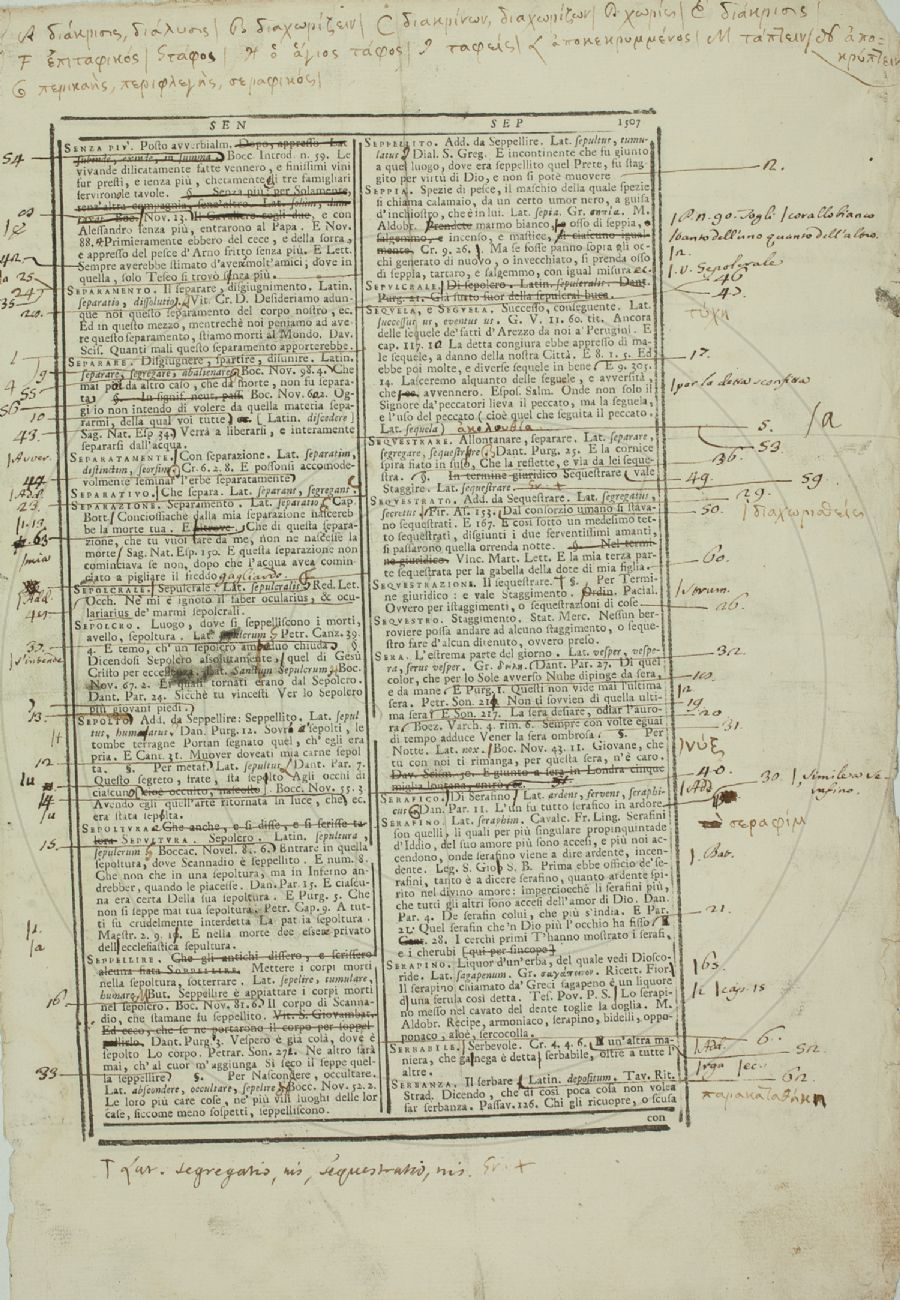 A διάκρισις, διάλυσις | B διαχωρίζειν | C διακρίνων, διαχωρίζων | D χωρίς | E διάκρισις |
F ἐπιταφικός | G τάφος | H ὁ ἅγιος τάφος | I ταφείς | L ἀποκεκρυμμένος | M τάπτειν | N ἀπο-
κρύπτειν
περικαὴς, περιφλεγὴς, σεραφικός |
SEN
SENZA PIU'. Posto avverbialm. Dopo, appresso. Lat.
subinde, exinde, in summa. Bocc. Introd. n. 59. Le
vivande dilicatamente fatte vennero, e finissimi vini
fur presti, e senza più, chetamente gli tre famigliari
servirono le tavole. §. Senza più: per Solamente,
senz'altra compagnia, senz'altro. Lat. solum, dum-
taxat. Boc. Nov. 13. Il Cavaliere togli due, e con
Alessandro senza più, entrarono al Papa. E Nov.
88. Primieramente ebbero del cece, e della sorra,
e appresso del pesce d'Arno fritto senza più. E Lett.
Sempre averebbe stimato d'aver molt'amici; dove in
quella, solo Teseo si trovò senza più.
SEPARAMENTO. Il separare, disgiugnimento. Latin.
separatio, dissolutio. Vit. Cr. D. Desideriamo adun-
que noi questo separamento del corpo nostro, ec.
Ed in questo mezzo, mentrechè noi peniamo ad ave-
re questo separamento, stiamo morti al Mondo. Dav.
Scis. Quanti mali questo separamento apporterebbe.
SEPARARE. Disgiugnere, spartire, disunire. Latin.
separare, segregare, abalienare. Boc. Nov. 98. 4. Che
mai poi da altro caso, che da morte, non fu separa-
ta. §. In signif. neut. pass. Boc. Nov. 602. Og-
gi io non intendo di volere da quella materia sepa-
rarmi, della qual voi tutte, ec. [Latin. discedere]
Sag. Nat. Esp. 34. Verrà a liberarsi, e interamente
separarsi dall'acqua.
SEPARATAMENTE. Con separazione. Lat. separatim,
distinctim, seorsim. Cr. 6. 2. 8. E possonsi accomode-
volmente seminar l'erbe separatamente.
SEPARATIVO. Che separa. Lat. separans, segregans.
SEPARAZIONE. Separamento. Lat. separatio. Cap.
Bott. Conciossiache dalla mia separazione nascereb-
be la morte tua. E altrove. Che di questa separa-
zione, che tu vuoi fare da me, non ne nascesse la
morte. Sag. Nat. Esp. 150. E questa separazione non
cominciava se non, dopo che l'acqua avea comin-
ciato a pigliare il freddo gagliardo
SEPOLCRALE. Sepulcrale. Lat. sepulcralis. Red. Let.
Occh. Nè mi è ignoto il faber ocularius, & ocu-
lariarius de' marmi sepolcrali.
SEPOLCRO. Luogo, dove si seppelliscono i morti,
avello, sepoltura. Lat. sepulcrum. Petr. Canz. 39.
4. E temo, ch'un sepolcro ambeduo chiuda. §.
Dicendosi Sepolcro assolutamente, quel di Gesù
Cristo per eccellenza. Lat. Sanctum Sepulcrum. Boc.
Nov. 67. 2. E' quali tornati erano dal Sepolcro.
Dant. Par. 24. Sicchè tu vincesti Ver lo Sepolcro
più giovani piedi.
SEPOLTO. Add. da Seppellire: Seppellito. Lat. sepul
tus, humatus. Dan. Purg. 12. Sovra a' sepolti, le
tombe terragne Portan segnato quel, ch'egli era
pria. E Cant. 31. Muover doveati mia carne sepol
ta. §. Per metaf. Lat. sepultus. Dant. Par. 7.
Questo segreto, frate, sta sepolto Agli occhi di
ciascuno cioè occulto, nascosto. Bocc. Nov. 55. 3
Avendo egli quell'arte ritornata in luce, che, ec.
era stata sepolta.
SEPOLTURA. Che anche, e si disse, e si scrisse ta-
lora SEPULTURA. Sepolcro. Latin. sepultura,
sepulcrum. Boccac. Novel. 81. 6. Entrare in quella
sepoltura, dove Scannadio è seppellito. E num. 8.
Che non che in una sepoltura, ma in Inferno an-
drebber, quando le piacesse. Dan. Par. 15. E ciascu-
na era certa Della sua sepoltura. E Purg. 5. Che
non si seppe mai tua sepoltura. Petr. Cap. 9. A tut-
ti fu crudelmente interdetta La patria sepoltura.
Maestr. 2. 9. 10. E nella morte dee essere privato
dell'ecclesiastica sepultura.
SEPPELLIRE. Che gli antichi dissero, e scrissero
alcuna fiata SOPPELLIRE. Mettere i corpi morti
nella sepoltura, sotterrare. Lat. sepelire, tumulare,
humare. But. Seppellire è appiattare i corpi morti
nel sepolcro. Boc. Nov. 81. 6. Il corpo di Scanna-
dio, che stamane fu seppellito. Vit. S. Giovambat.
Ed ecco, che se ne portarono il corpo per soppel-
lirlo. Dant. Purg. 3. Vespero è già colà, dove è
sepolto Lo corpo. Petrar. Son. 271. Ne altro sarà
mai, ch'al cuor m'aggiunga Si seco il seppe quel-
la seppellire. §. Per Nascondere, occultare.
Lat. abscondere, occultare, sepelire. Bocc. Nov. 52. 2.
Le loro più care cose, ne' più vili luoghi delle lor
case, siccome meno sospetti, seppelliscono.
SEP 1507
SEPPELLITO. Add. da Seppellire. Lat. sepultur, tumu-
latus. Dial. S. Greg. E incontinente che fu giunto
a quel luogo, dove era seppellito quel Prete, fu stag-
gito per virtù di Dio, e non si potè muovere
SEPPIA. Spezie di pesce, il maschio della quale spezie
si chiama calamaio, da un certo umor nero, a guisa
d'inchiostro, che è in lui. Lat. sepia. Gr. σηπία. M.
Aldobr. Prendete marmo bianco, osso di seppia, e
salgemmo, e incenso, e mastice, di ciascuno igual-
mente. Cr. 9. 26. 1. Ma se fosse panno sopra gli oc-
chi generato di nuovo, o invecchiato, si prenda osso
di seppia, tartaro, e salgemmo, con igual misura ec.
SEPULCRALE. Di sepolcro. Latin. sepulcralis. Dant.
Purg. 21. Già surto fuor della sepulcral buca.
SEQUELA, e SEGUELA. Successo, conseguente. Lat.
successur us, eventus us. G. V. 11. 60. tit. Ancora
delle sequele de' fatti d'Arezzo da noi a' Perugini. E
cap. 117. 10. La detta congiura ebbe appresso di ma-
le sequele, a danno della nostra Città. E 8. 1. 5. Ed
ebbe poi molte, e diverse sequele in bene. E 9. 305.
14. Lasceremo alquanto delle seguele, e avversità,
che, ec. avvennero. Espos. Salm. Onde non solo il
Signore da' peccatori lieva il peccato, ma la seguela,
e l'uso del peccato (cioè quel che seguita il peccato.
Lat. sequela) ἀκολουθία.
SEQUESTRARE. Allontanare, separare. Lat. separare,
segregare, sequestrare. Dant. Purg. 25. E la cornice
spira fiato in suso, Che la reflette, e via da lei seque-
stra. §. In termine giuridico Sequestrare vale
Staggire. Lat. sequestrare.
SEQUESTRATO. Add. da Sequestrare. Lat. segregatus,
secretus. Fir. As. 153. Dal consorzio umano si stava-
no sequestrati. E 167. E così sotto un medesimo tet-
to sequestrati, disgiunti i duo ferventissimi amanti,
si passavono quella orrenda notte. §. Nel termi-
ne giuridico. Vinc. Mart. Lett. E la mia terza par-
te sequestrata per la gabella della dote di mia figlia.
SEQUESTRAZIONE. Il sequestrare. † §. Per Termi-
ne giuridico: e vale Staggimento. Ordin. Pacial.
Ovvero per istaggimenti, o sequestrazioni di cose.
SEQUESTRO. Staggimento. Stat. Merc. Nessun ber-
roviere possa andare ad alcuno staggimento, o seque-
stro fare d'alcun divenuto, ovvero preso.
SERA. L'estrema parte del giorno. Lat. vesper, vespe-
ra, serus vesper. Gr. Dant. Par. 27. Di quel
color, che per lo Sole avverso Nube dipinge da sera,
e da mane. E Purg. 1. Questi non vide mai l'ultima
sera. Petr. Son. 210. Non ti sovvien di quella ulti-
ma sera. E Son. 217. La sera desiare, odiar l'auro-
ra. Boez. Varch. 4. rim. 6. Sempre con volte eguai
di tempo adduce Vener la sera ombrosa. §. Per
Notte. Lat. nox. Boc. Nov. 43. 11. Giovane, che
tu con noi ti rimanga, per questa sera, n'è caro.
Dav. Scism. 50. E giunto a sera in Londra cinque
miglia lontana, entrò, ec.
SERAFICO. Di Serafino. Lat. ardens, fervens, seraphi-
cus. Dan. Par. 11. L'un fu tutto serafico in ardore.
SERAFINO. Lat. seraphim. Cavalc. Fr. Ling. Serafini
son quelli, li quali per più singulare propinquitade
d'Iddio, del suo amore più sono accesi, e più noi ac-
cendono, onde serafino viene a dire ardente, incen-
dente. Leg. S. Gio: S. B. Prima ebbe officio de' se-
rafini, tanto è a dicere serafino, quanto ardente spi-
rito nel divino amore: imperciocchè li serafini più,
che tutti gli altri sono accesi dell'amor di Dio. Dan.
Par. 4. De serafin colui, che più s'india. E Par.
21. Quel serafin che'n Dio più l'occhio ha fisso.
Cant. 28. I cerchi primi T'hanno mostrato i serafi,
e i cherubi [qui per sincope]
SERAPINO. Liquor d'un'erba, del quale vedi Diosco-
ride. Lat. sagapenum. Gr. σαγάπηνον. Ricett. Fior.
Il serapino chiamato da' Greci sagapeno è un liquore
d'una ferula così detta. Tes. Pov. P. S. Lo serapi-
no messo nel cavato del dente toglie la doglia. M.
Aldobr. Recipe, armoniaco, serapino, bidelli, oppo-
ponaco, aloè, sercocolla.
SERBABILE. Serbevole. Cr. 4. 4. 6. E un'altra ma-
niera, che garnega è detta, serbabile, oltre a tutte l'
altre.
SERBANZA. Il serbare. Latin. depositum. Tav. Rit.
Strad. Dicendo, che di così poca cosa non volea
far serbanza. Passav. 126. Chi gli ricuopre, o scusa
con
54
42
25
24
35
20.
1
9
4
55
56
10
43.
44
23.
1.19
63
/mia
49
39.
13.
12
15
16
33
2.
/P. n. 90. Togli / corallo bianco
/tanto dell'uno quanto dell'altro.
/2.
/. V. Sepolcrale
46
47.
τύχη
17.
/per la detta sconfitta
/a
5.
53.
36.
49.
59.
29.
50.
/διαχωρισθείς/
60.
/strum.
26.
32.
10.
19
20
31.
/νύξ
40.
/Add
30. / Simile a Se-
rafino.
σεραφίμ
/. Bat.
21.
165.
/cap. 15
/Add.
6.
52.
/ec.
62
παρακαταθήκη
† Lat. segregatio, nis, sequestratio, nis. Gr. +